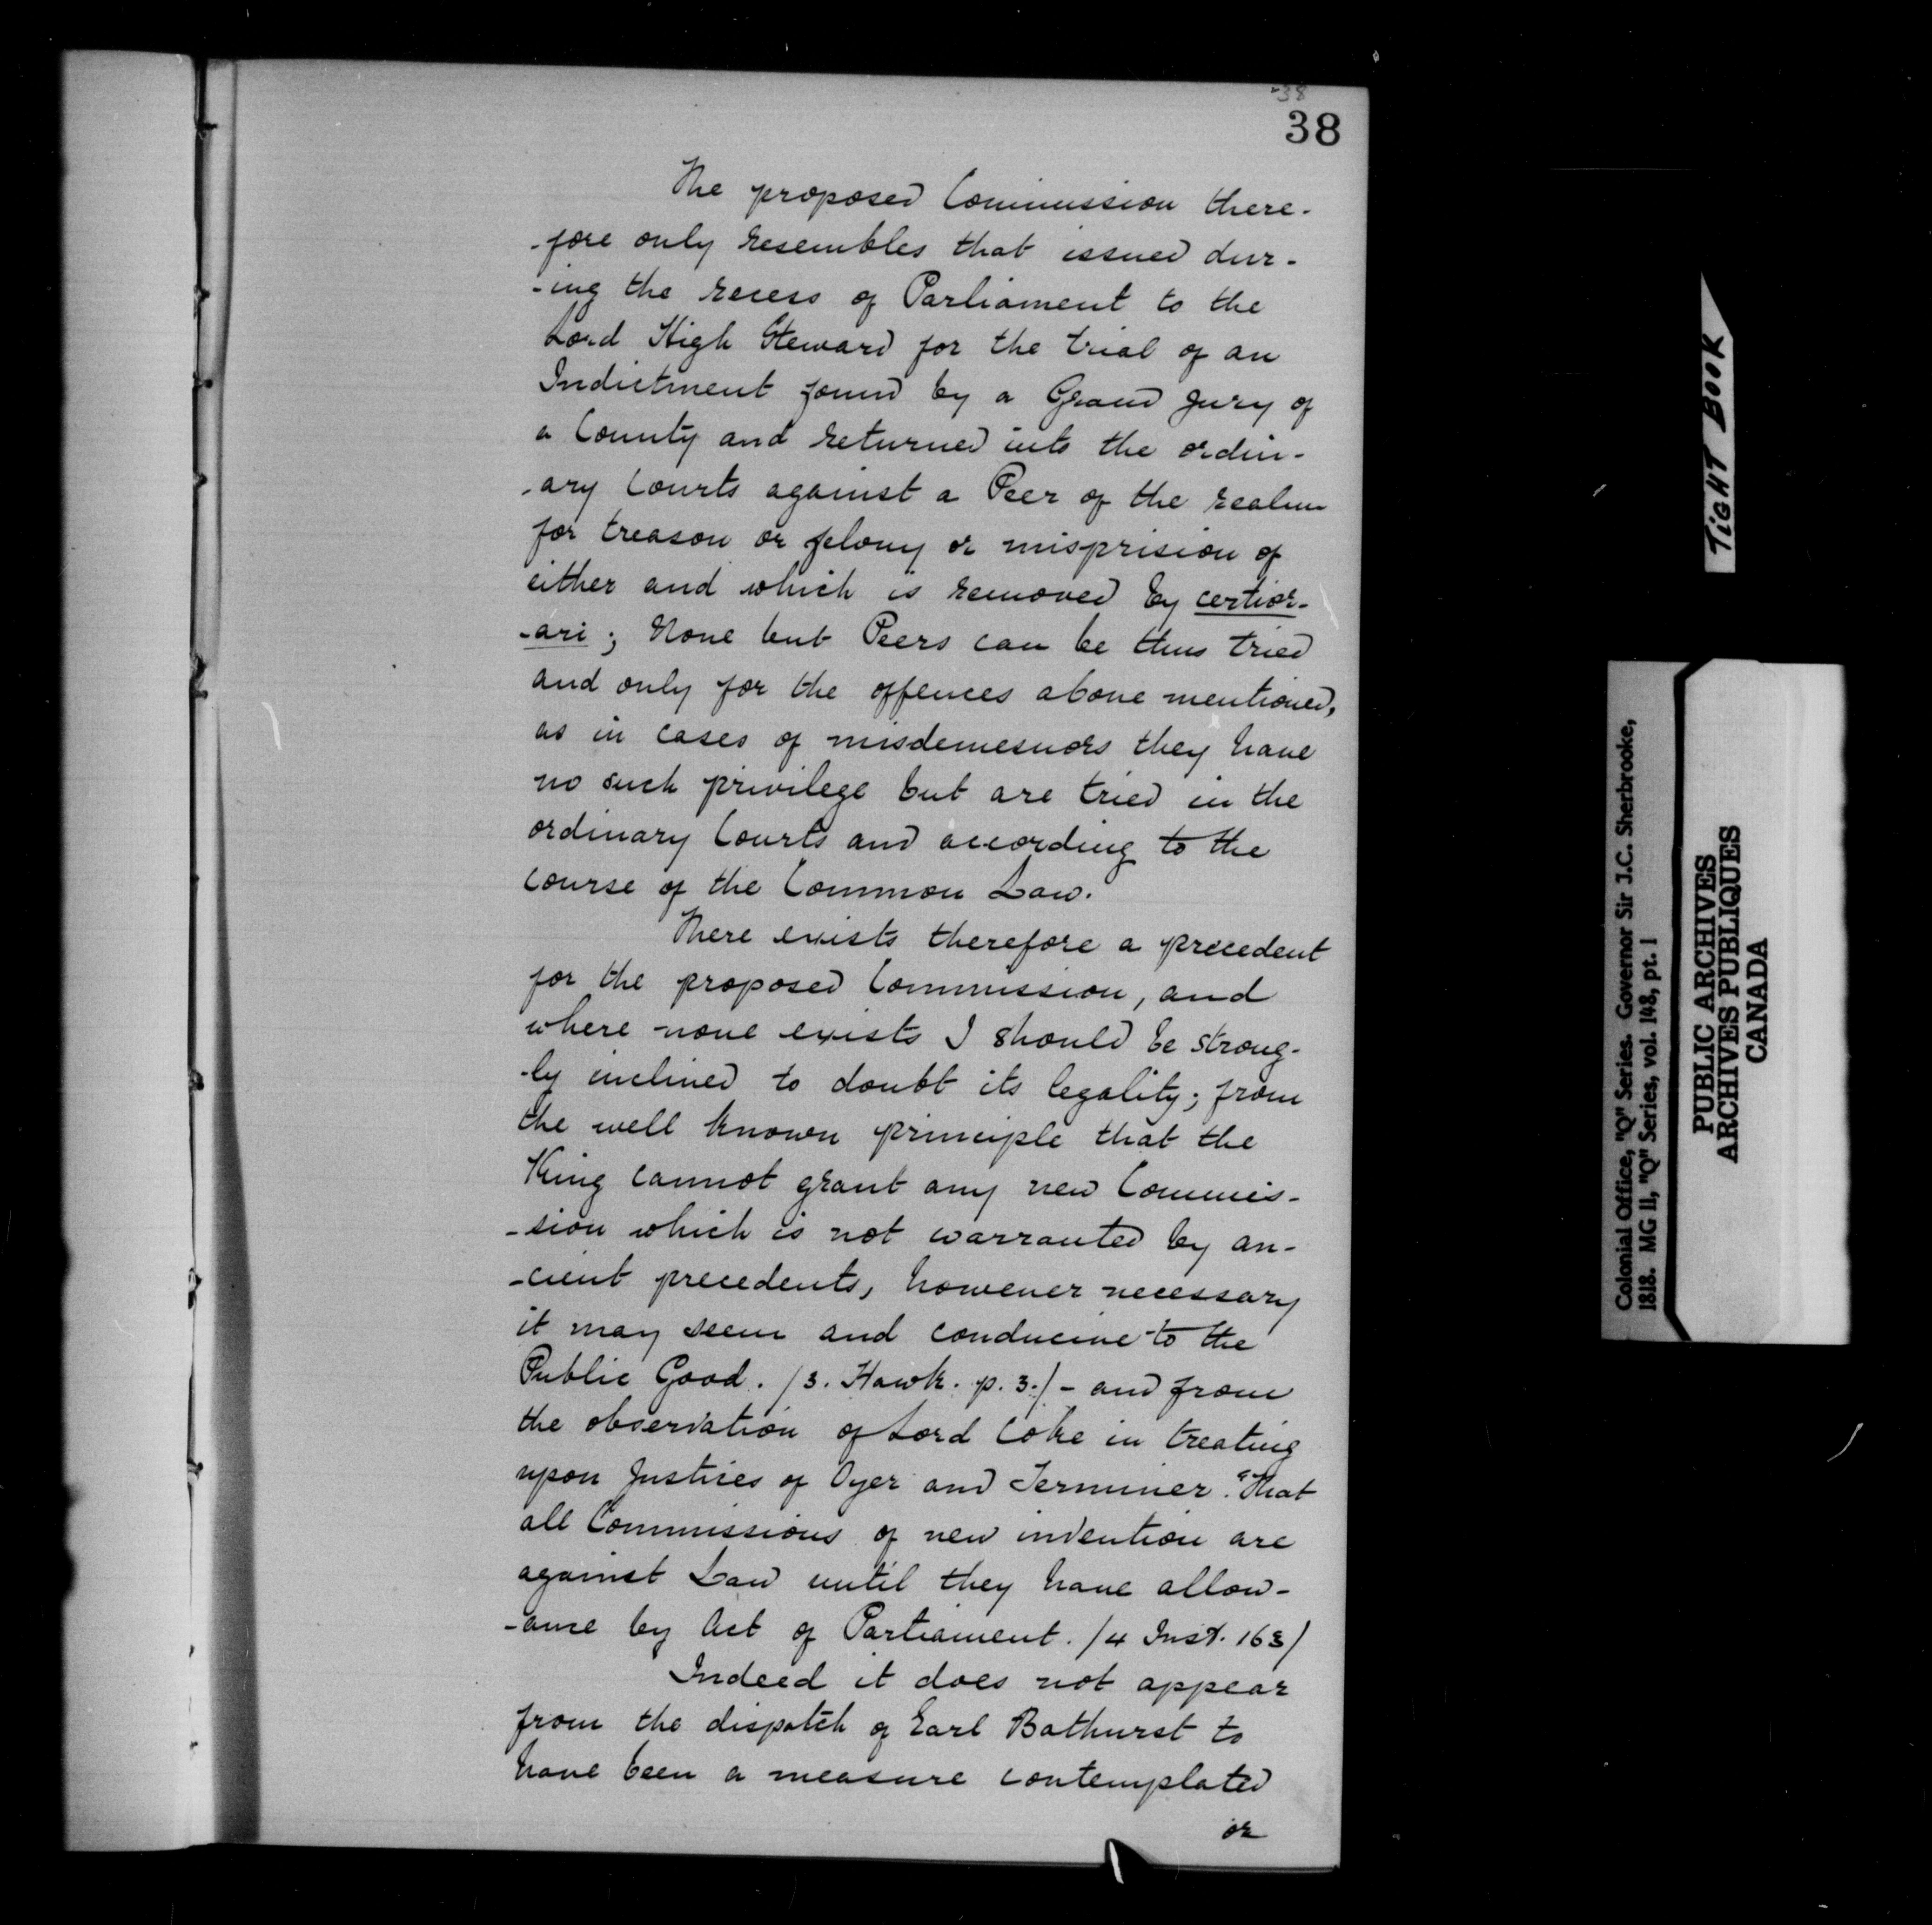 38
38
The proposed Commission there-
-fore only resembles that issued dur-
-ing the recess of Parliament to the
Lord High Steward for the trial of an
Indictment found by a Grand Jury of
a County and returned into the ordin-
-ary Courts against a Peer of the realm
for treason or felony or misprision of
either and which is removed by certior-
-ari; None but Peers can be thus tried
and only for the offences above mentioned,
as in cases of misdemesnors they have
no such privilege but are tried in the
ordinary Courts and according to the
course of the Common Law.
There exists therefore a precedent
for the proposed Commission, and
where none exists I should be strong-
-ly inclined to doubt its legality; from
the well known principle that the
King cannot grant any new Commis-
-sion which is not warranted by an-
-cient precedents, however necessary
it may seem and conducive to the
Public Good. /3. Hawk. p. 3./ - and from
the observation of Lord Coke in treating
upon Justices of Oyer and Terminer. "That
all Commissions of new invention are
against Law until they have allow-
-ance by Act of Parliament. /4 Inst. 163/
Indeed it does not appear
from the dispatch of Earl Bathurst to
have been a measure contemplated
or
TIGHT BOOK
Colonial Office, "Q" Series. Governor Sir J.C. Sherbrooke,
1818. MG 11, "Q" Series, vol. 148, pt. 1
PUBLIC ARCHIVES
ARCHIVES PUBLIQUES
CANADA